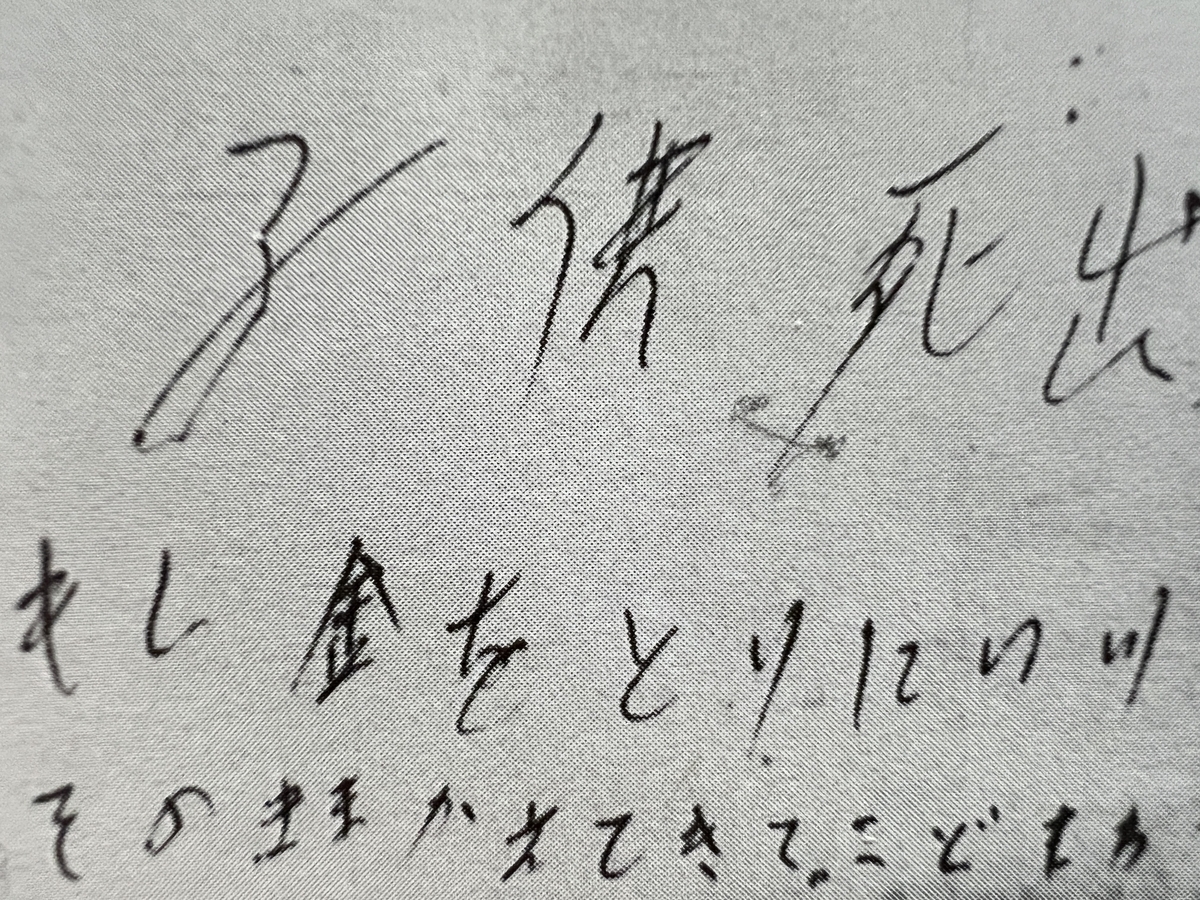 子供死出
もし金をとりにいツ
そのままかえてきて.こどもわ